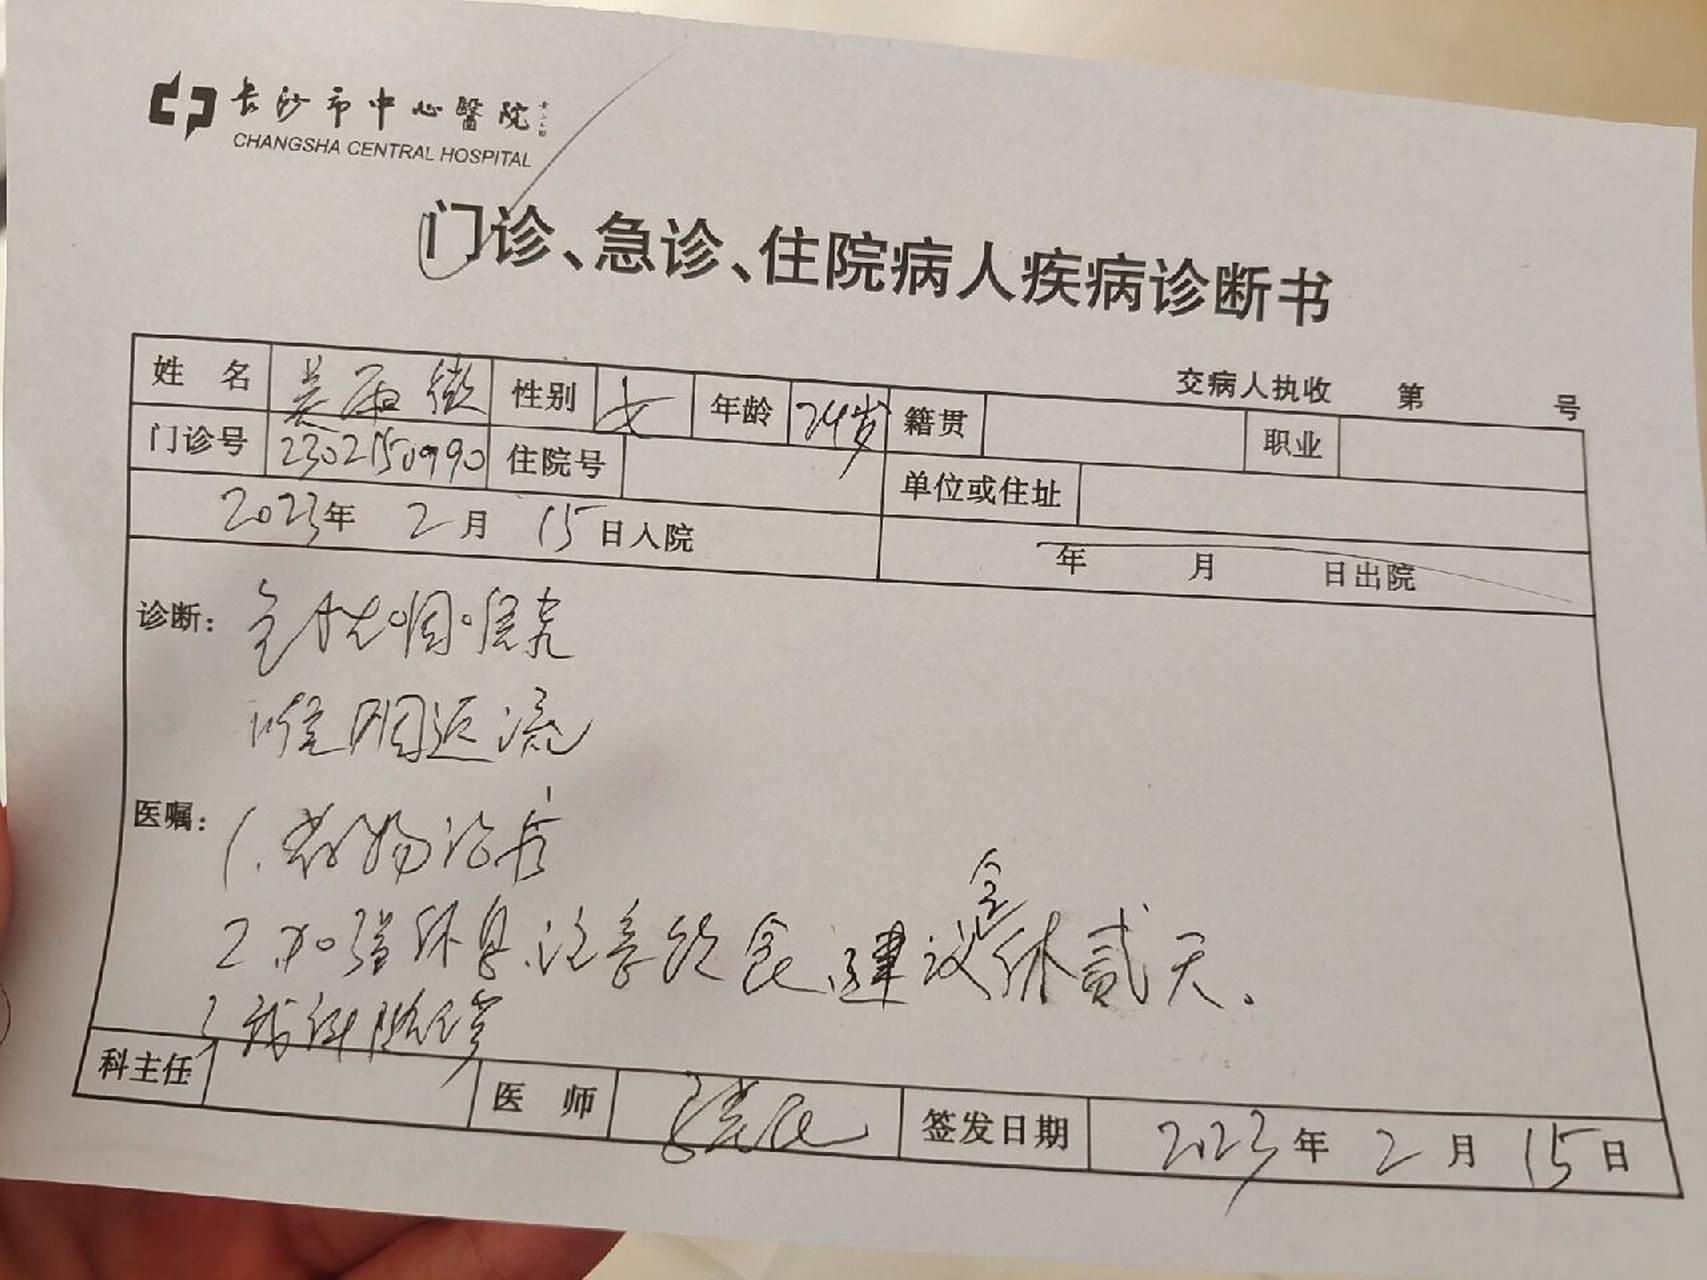 长沙市中心醫院
CHANGSHA CENTRAL HOSPITAL
门诊、急诊、住院病人疾病诊断书
交病人执收 第 号
姓 名 姜雨微 性别 女 年龄 24岁 籍贯 职业
门诊号 2302150990 住院号 单位或住址
2023年 2月 15日入院 年 月 日出院
诊断:
喉咽返流
医嘱: 1. 药物治疗
2. 加强休息、注意饮食、建议全休贰天。
3. 我科随诊
科主任 医 师 签发日期 2023年 2月 15日